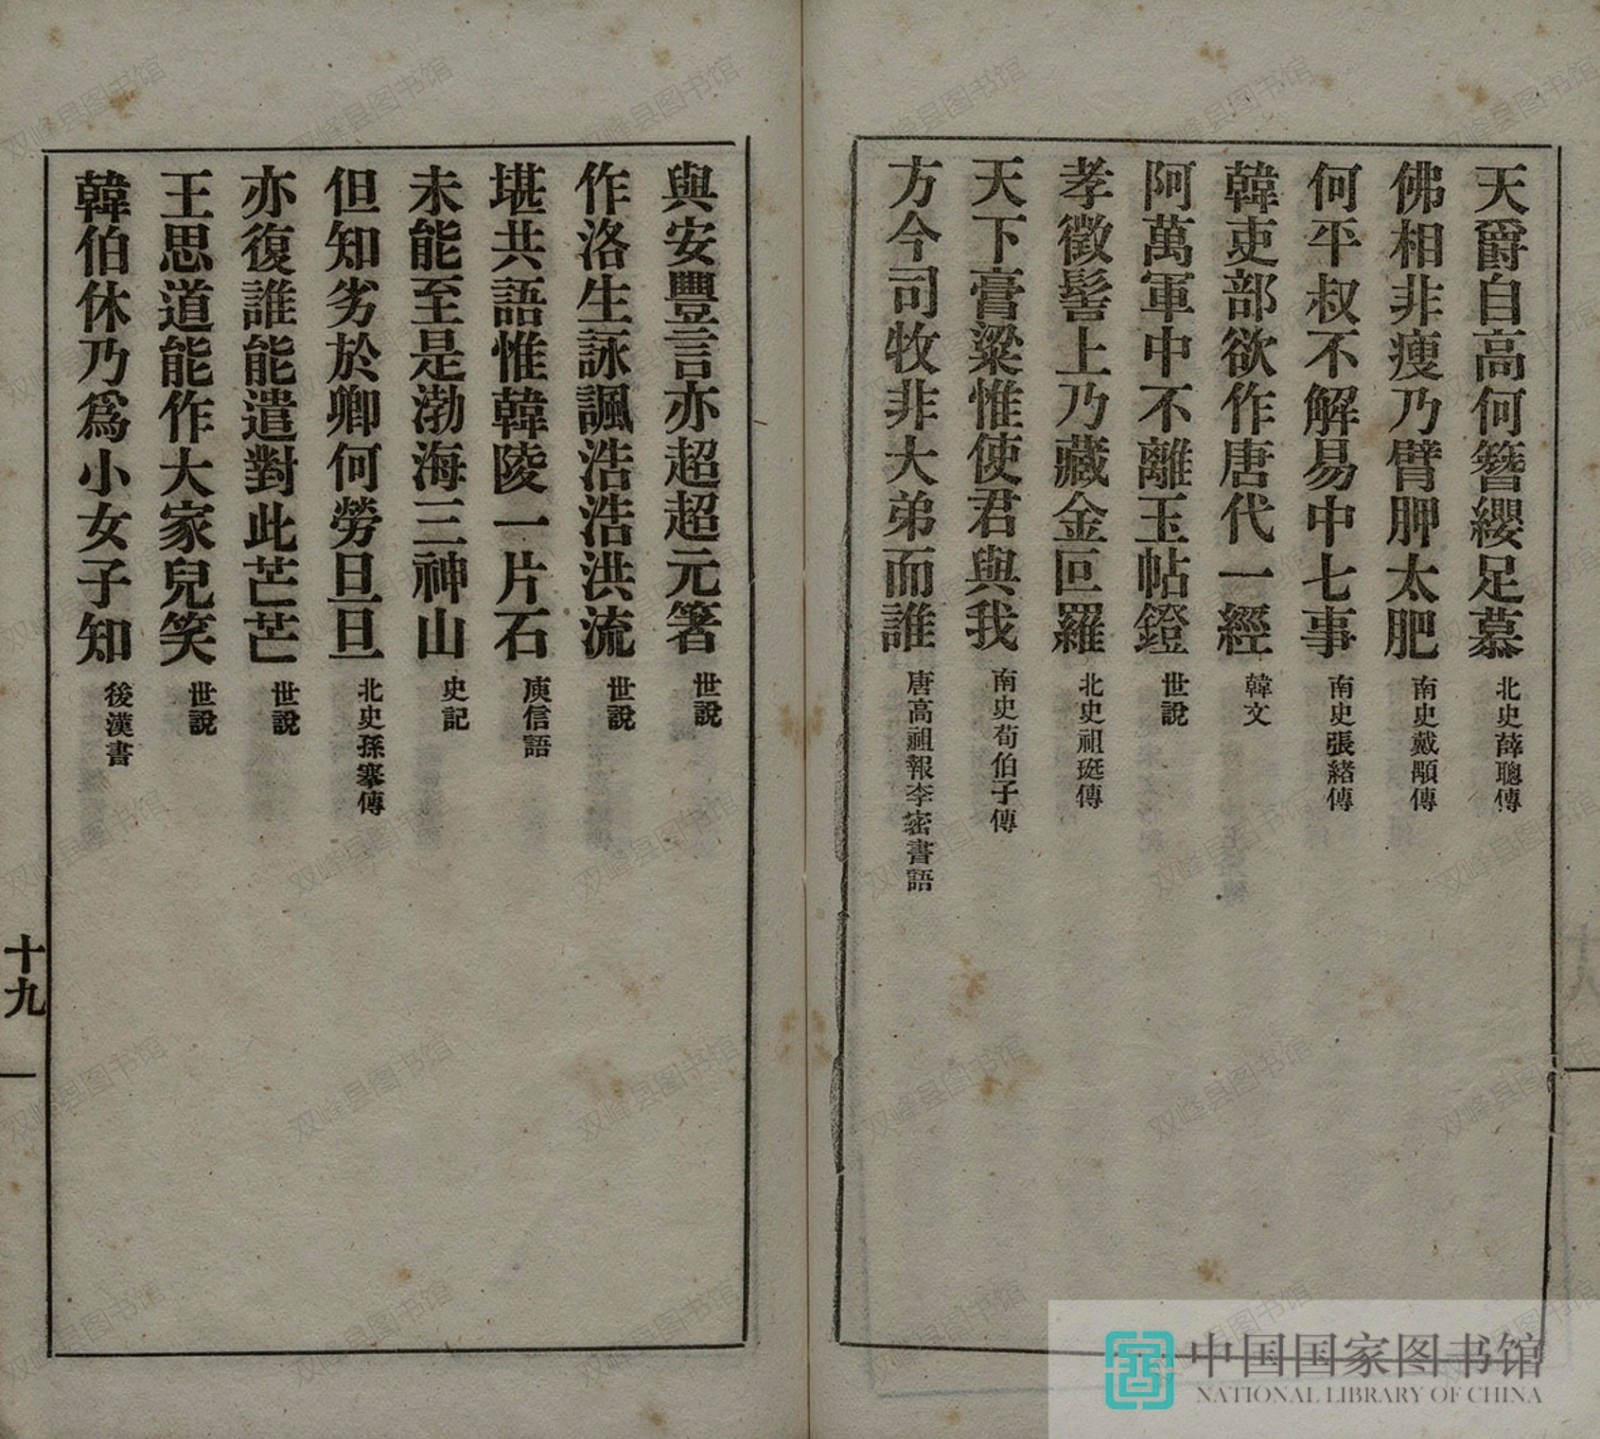 天爵自高何簪纓足慕 北史薛聰傳
佛相非瘦乃臂胛太肥 南史戴顒傳
何平叔不解易中七事 南史張緒傳
韓吏部欲作唐代一經 韓文
阿萬軍中不離玉帖鐙 世說
孝徵髻上乃藏金叵羅 北史祖珽傳
天下膏粱惟使君與我 南史荀伯子傳
方今司牧非大弟而誰 唐高祖報李密書語
與安豐言亦超超元箸 世說
作洛生詠諷浩浩洪流 世說
堪共語惟韓陵一片石 庾信語
未能至是渤海三神山 史記
但知劣於卿何勞旦旦 北史孫搴傳
亦復誰能遣對此芒芒 世說
王思道能作大家兒笑 世說
韓伯休乃爲小女子知 後漢書
十九
中国国家图书馆
NATIONAL LIBRARY OF CHINA
双峰县图书馆